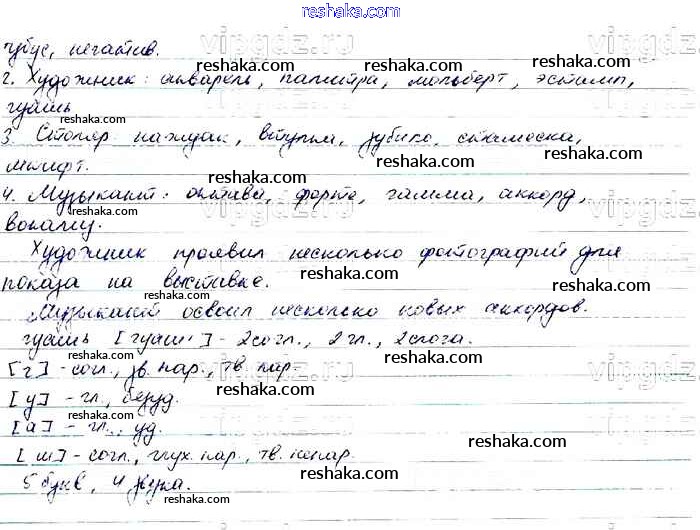 reshaka.com
тубус, негатив.
2. Художник: акварель, палитра, мольберт, эстамп,
гуашь
3. Столяр: наждак, втулка, зубило, стамеска,
шлифт.
4. Музыкант: октава, форте, гамма, аккорд,
вокализ.
Художник проявил несколько фотографий для
показа на выставке.
Музыкант освоил несколько новых аккордов.
гуашь [гуаш] - 2согл., 2 гл., 2слога.
[г] - согл., зв. пар., тв. пар.
[у] - гл., безуд.
[а] - гл., уд.
[ш] - согл., глух. пар., тв. непар.
5 букв, 4 звука.